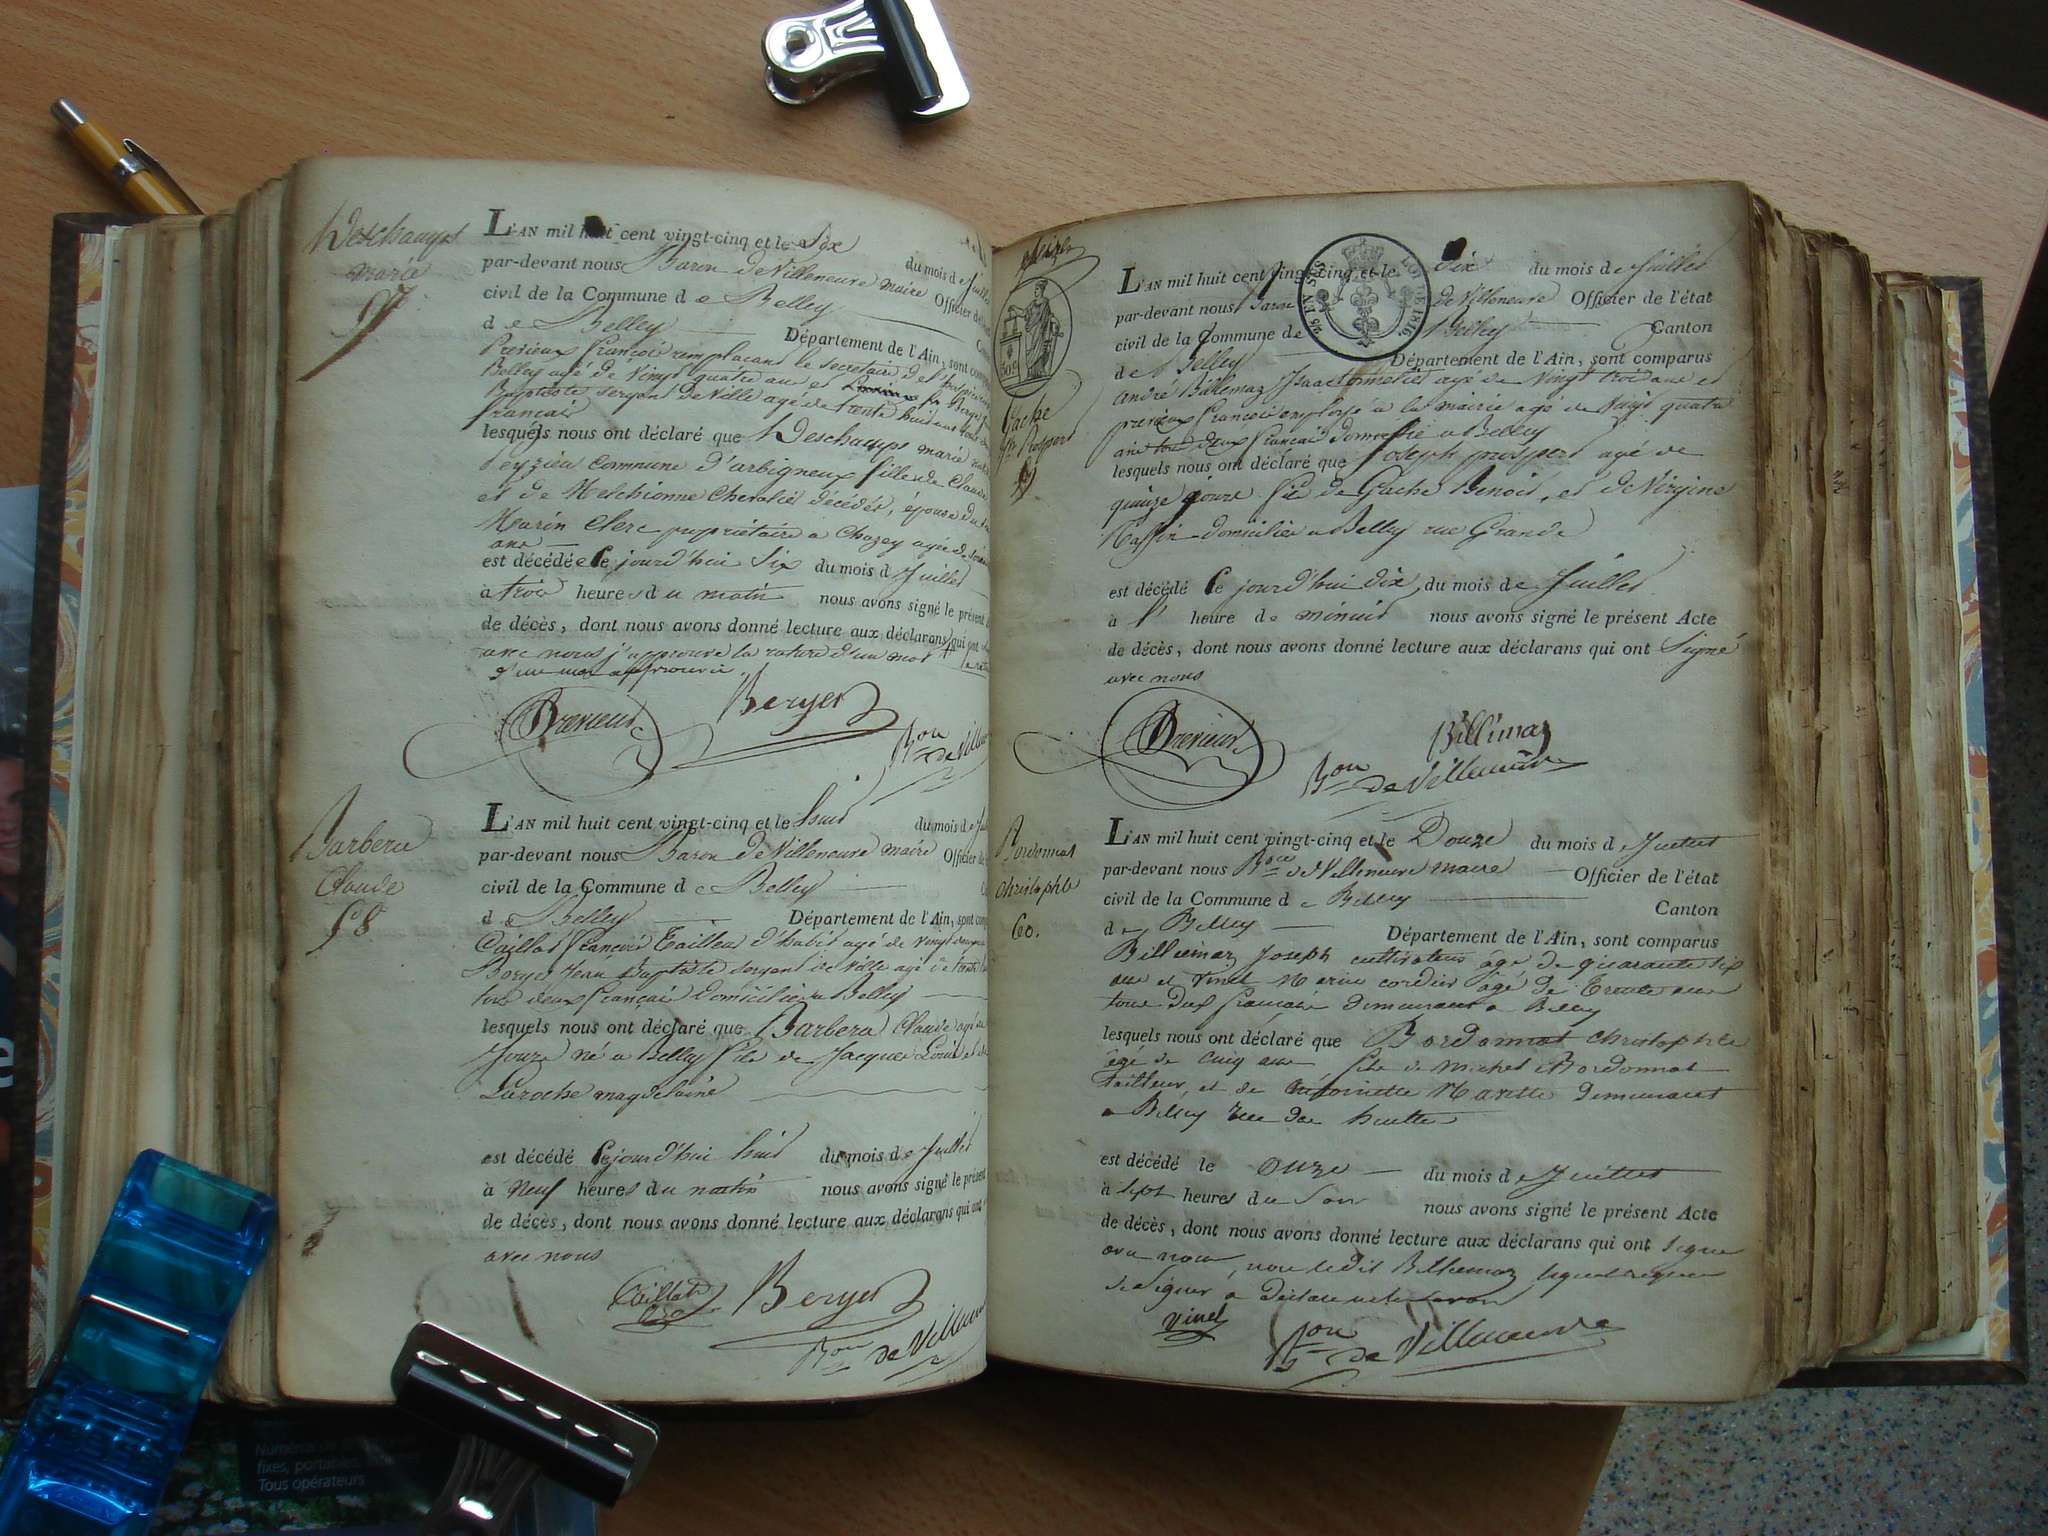 Deschamps
marie
57
L'AN mil huit cent vingt-cinq et le Six du mois de Juillet
par-devant nous Baron de Villeneuve maire Officier de
civil de la Commune d e Belley
d e Belley Département de l'Ain, sont
Previeux François remplacant le secretaire de
Belley agé de Vingt quatre ans et Berger
Baptiste sergent de Ville agé de trente huit ans
français
lesquels nous ont déclaré que Deschamps marie
Peyzieu Commune d'arbigneux fille de Claude
et de Melchionne Chevalier décédés, épouse
Marin Clerc propriétaire a Chazey agée de
ans
est décédée le jourd'hui Six du mois d Juillet
à trois heures du matin nous avons signé le présent
de décès, dont nous avons donné lecture aux déclarans qui ont
avec nous j'approuve la rature d'un mot
d'un mot approuvé.
Previeux
Berger
Bon de Ville
Barbera
Claude
58
L'AN mil huit cent vingt-cinq et le huit du mois de
par-devant nous Baron de Villeneuve maire Officier de
civil de la Commune d e Belley
d e Belley Département de l'Ain, sont
Caillat François Tailleur d'habit agé de vingt
Berger Jean Baptiste sergent de Ville agé de trente
tous deux français domicilié a Belley
lesquels nous ont déclaré que Barbera Claude agé de
Jours né a Belley fils de Jacque Louis et de
Laroche magdelaine
est décédé le jourd'hui huit du mois de Juillet
à Neuf heures du matin nous avons signé le présent
de décès, dont nous avons donné lecture aux déclarans qui ont
avec nous
Caillat
Berger
Bon de Villeneuve
Gache
Jh Prospert
L'AN mil huit cent vingt-cinq et le dix du mois de Juillet
par-devant nous Baron de Villeneuve Officier de l'état
civil de la Commune de Belley Canton
d e Belley Département de l'Ain, sont comparus
André Billemaz agé de Vingt trois ans et
previeux François employé a la mairie agé de Vingt quatre
ans tous deux français domicilié a Belley
lesquels nous ont déclaré que Joseph prospert agé de
quinze jours fils de Gache Benoit, et de Virginie
domicilié a Belley rue Grande
est décédé le jourd'hui dix du mois de Juillet
à l' heure de minuit nous avons signé le présent Acte
de décès, dont nous avons donné lecture aux déclarans qui ont Signé
avec nous
Previeux
Billemaz
Bon de Villeneuve
Bordonnat
Christophle
60.
L'AN mil huit cent vingt-cinq et le Douze du mois d Juillet
par-devant nous Bon de Villeneuve maire Officier de l'état
civil de la Commune d e Belley Canton
d e Belley Département de l'Ain, sont comparus
Billiemaz Joseph cultivateur agé de quarante six
ans et Vinet cordier agé de Trente ans
tous deux français demeurant a Belley
lesquels nous ont déclaré que Bordonnat christophle
agé de cinq ans fils de michel Bordonnat
tailleur, et de Antoinette demeurant
a Belley rue des
est décédé le onze du mois de Juillet
à sept heures du Soir nous avons signé le présent Acte
de décès, dont nous avons donné lecture aux déclarans qui ont signé
avec nous, non ledit Billiemaz lequel requis
de signer a déclaré ne le savoir
Vinet
Bon de Villeneuve
Tous opérateurs